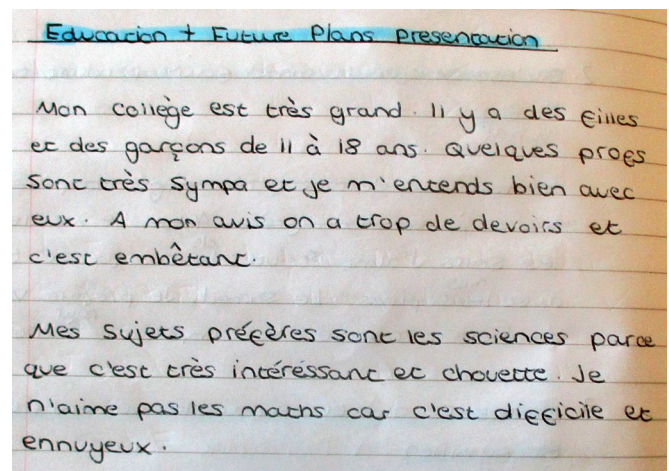 Education + Future Plans Presentation
Mon collège est très grand. Il y a des filles
et des garçons de 11 à 18 ans. Quelques profs
sont très sympa et je m'entends bien avec
eux. A mon avis on a trop de devoirs et
c'est embêtant.
Mes sujets préfères sont les sciences parce
que c'est très intéréssant et chouette. Je
n'aime pas les maths car c'est difficile et
ennuyeux.